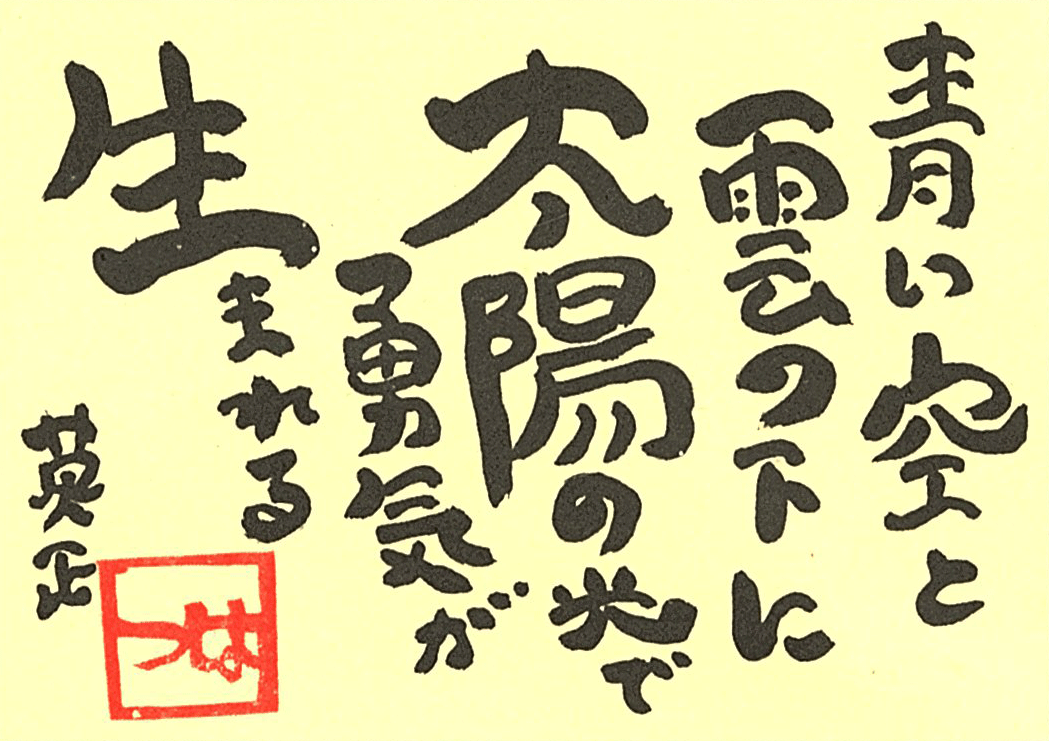 青い空と
雲の下に
太陽の光で
勇気が
生まれる
英正